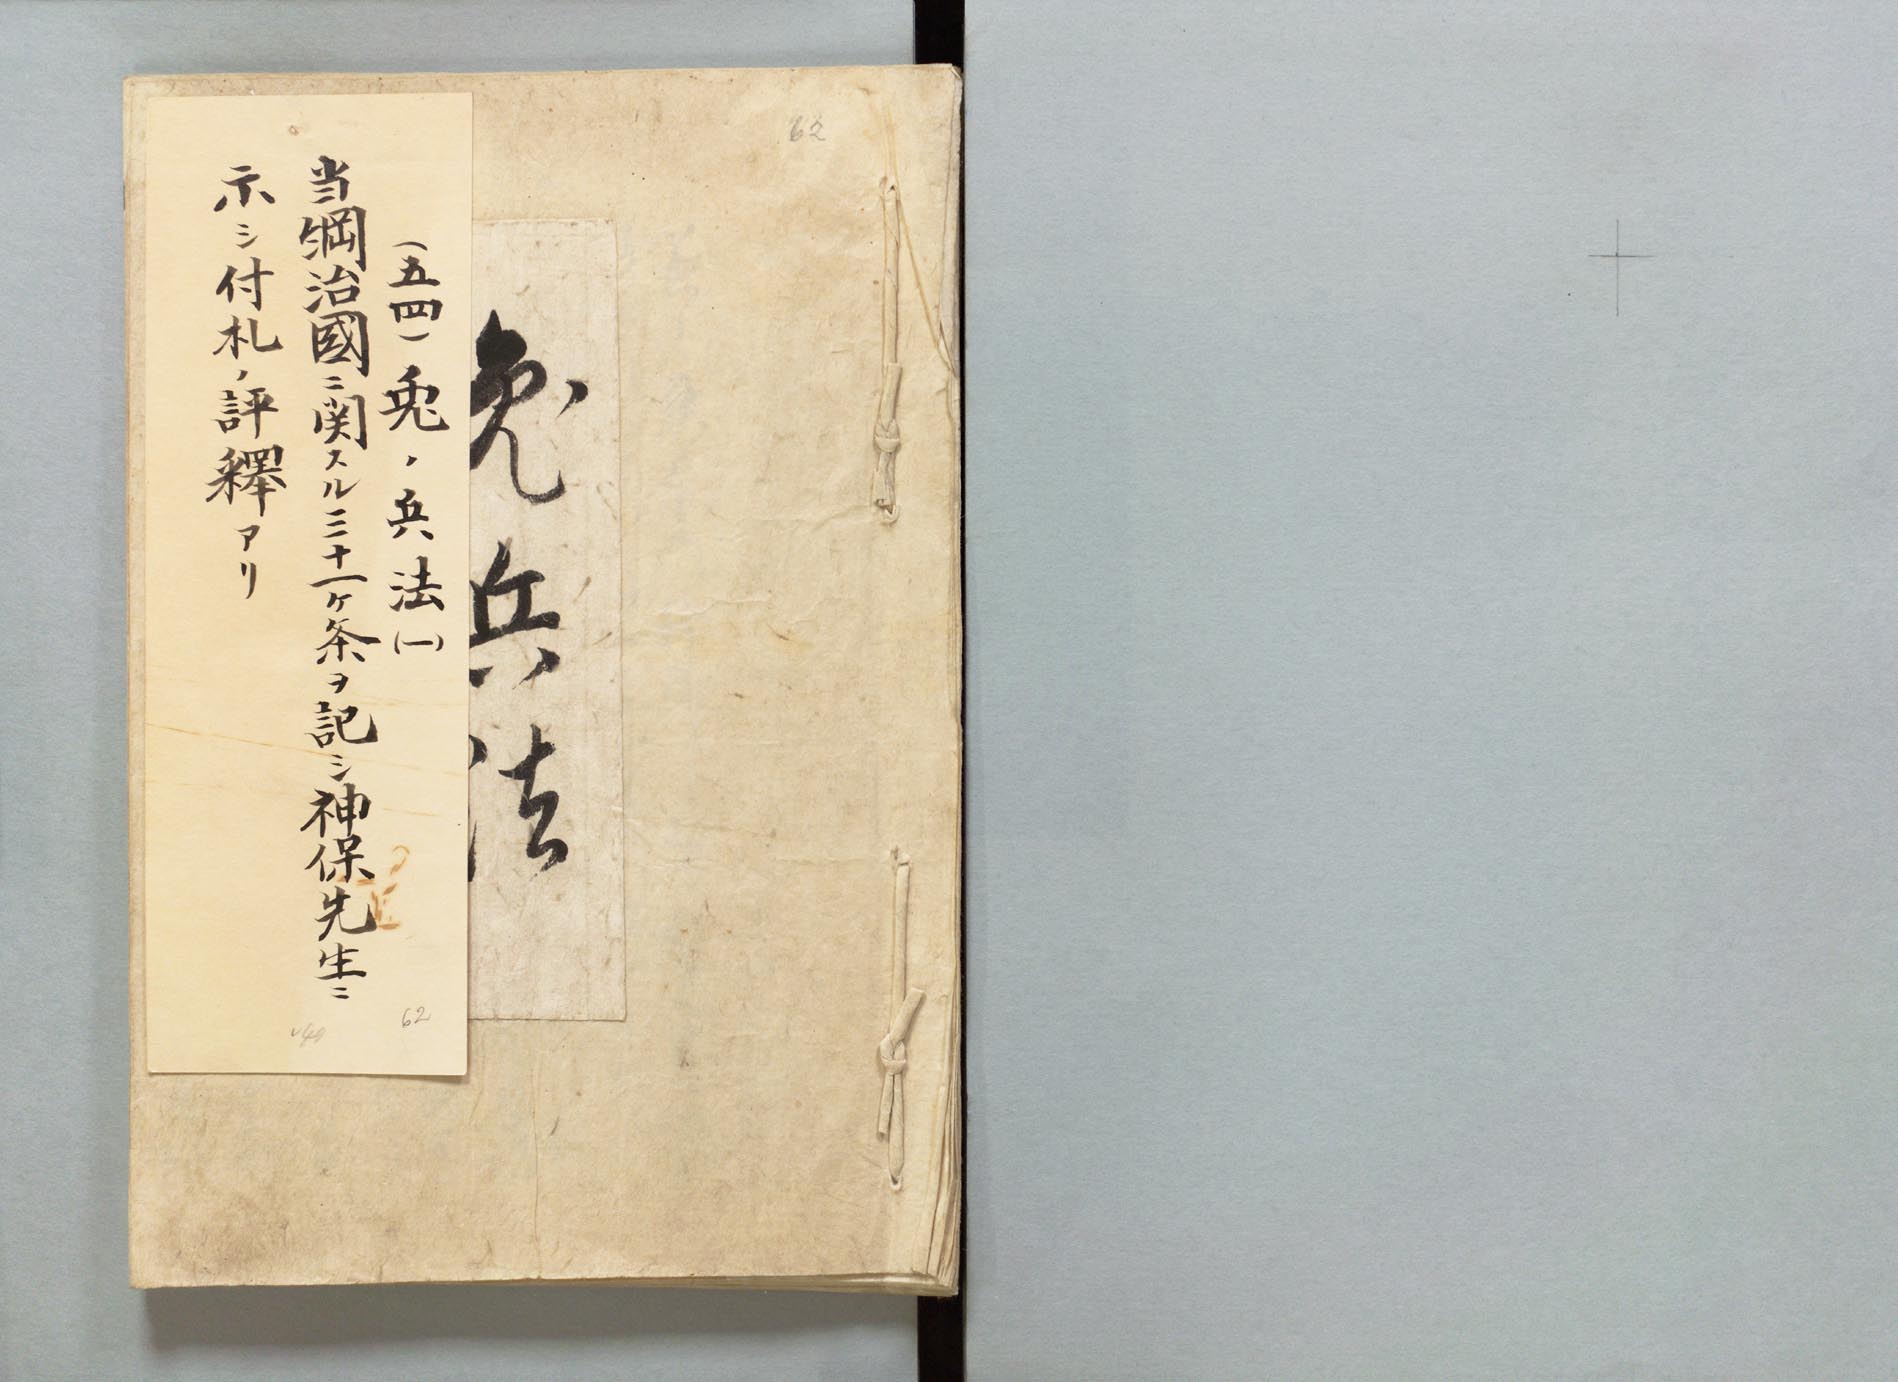 62
兎兵法
(五四)兎ノ兵法(一)
当綱治國ニ関スル三十一ケ条ヲ記シ神保先生ニ
示シ付札ノ評釋アリ
62